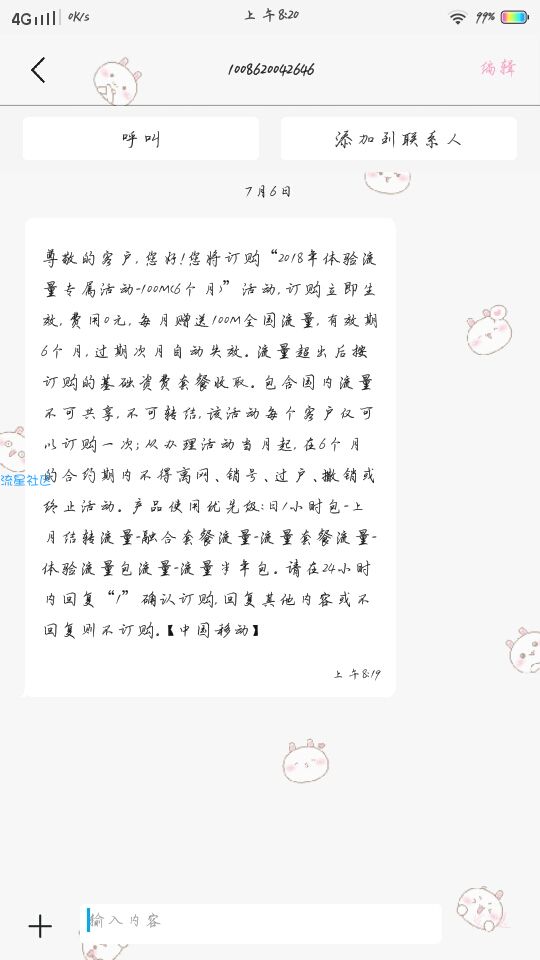 4G 0K/s 上午8:20 99%
1008620042646 编辑
呼叫 添加到联系人
7月6日
尊敬的客户,您好!您将订购“2018年体验流
量专属活动-100M(6个月)”活动,订购立即生
效,费用0元,每月赠送100M全国流量,有效期
6个月,过期次月自动失效。流量超出后按
订购的基础资费套餐收取。包含国内流量
不可共享,不可转结,该活动每个客户仅可
以订购一次;从办理活动当月起,在6个月
的合约期内不得离网、销号、过户、撤销或
终止活动。产品使用优先级:日1小时包-上
月结转流量-融合套餐流量-流量套餐流量-
体验流量包流量-流量半年包。请在24小时
内回复“1”确认订购,回复其他内容或不
回复则不订购。【中国移动】
上午8:19
流星社区
输入内容